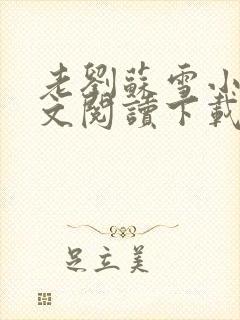 老劉蘇雪小
文閱讀下載
足立美